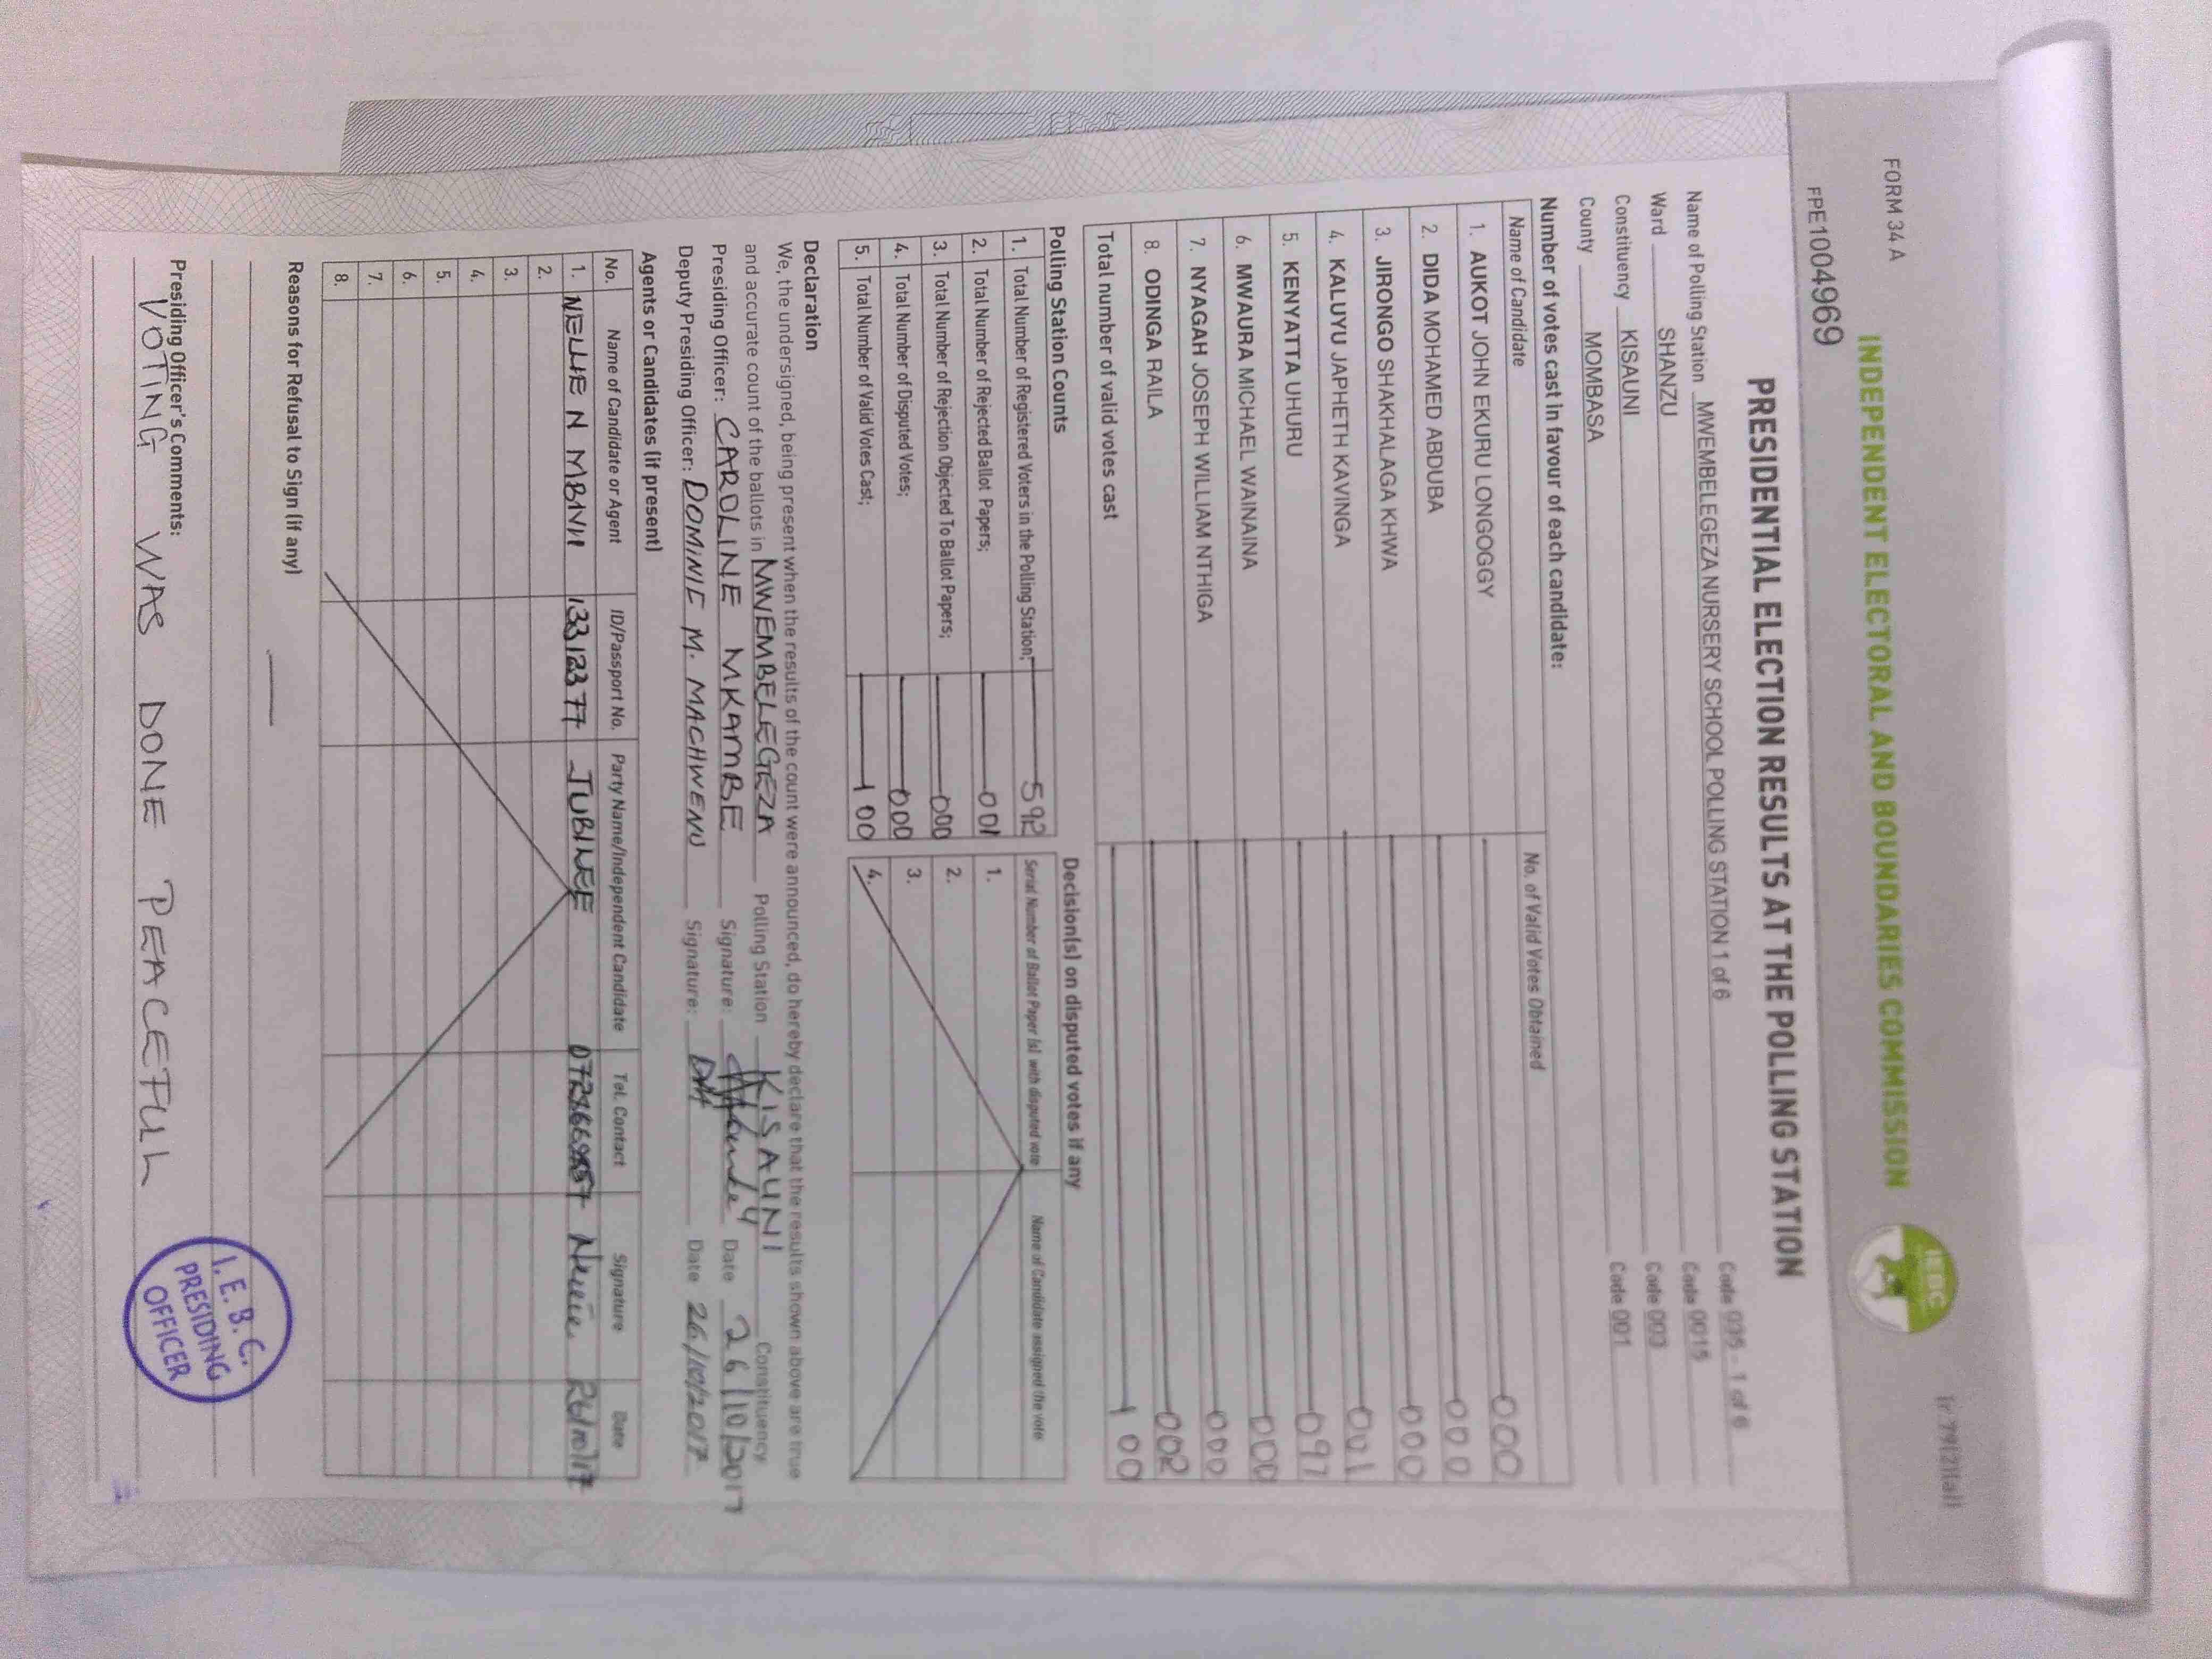 FORM 34 A
INDEPENDENT ELECTORAL AND BOUNDARIES COMMISSION
IEBC
FPE1004969
PRESIDENTIAL ELECTION RESULTS AT THE POLLING STATION
Name of Polling Station MWEMBELEGEZA NURSERY SCHOOL POLLING STATION 1 of 6 Code 035 - 1 of 6
Ward SHANZU Code 0015
Constituency KISAUNI Code 003
County MOMBASA Code 001
Number of votes cast in favour of each candidate:
Name of Candidate No. of Valid Votes Obtained
1. AUKOT JOHN EKURU LONGOGGY 000
2. DIDA MOHAMED ABDUBA 000
3. JIRONGO SHAKHALAGA KHWA 000
4. KALUYU JAPHETH KAVINGA 001
5. KENYATTA UHURU 097
6. MWAURA MICHAEL WAINAINA 000
7. NYAGAH JOSEPH WILLIAM NTHIGA 000
8. ODINGA RAILA 002
Total number of valid votes cast 100
Polling Station Counts
1. Total Number of Registered Voters in the Polling Station; 592
2. Total Number of Rejected Ballot Papers; 001
3. Total Number of Rejection Objected To Ballot Papers; 000
4. Total Number of Disputed Votes; 000
5. Total Number of Valid Votes Cast; 100
Decision(s) on disputed votes if any
Serial Number of Ballot Paper (s) with disputed vote Name of Candidate assigned the vote
1.
2.
3.
4.
Declaration
We, the undersigned, being present when the results of the count were announced, do hereby declare that the results shown above are true
and accurate count of the ballots in MWEMBELEGEZA Polling Station KISAUNI Constituency
Presiding Officer: CAROLINE MKAMBE Signature: Date 26/10/2017
Deputy Presiding Officer: DOMINIC M. MACHWENU Signature: Date 26/10/2017
Agents or Candidates (if present)
No. Name of Candidate or Agent ID/Passport No. Party Name/Independent Candidate Tel. Contact Signature Date
1. NELLIE N MBAVII 13312377 JUBILEE 26/10/17
2.
3.
4.
5.
6.
7.
8.
Reasons for Refusal to Sign (if any)
Presiding Officer's Comments:
VOTING WAS DONE PEACEFULL
I. E. B. C.
PRESIDING
OFFICER